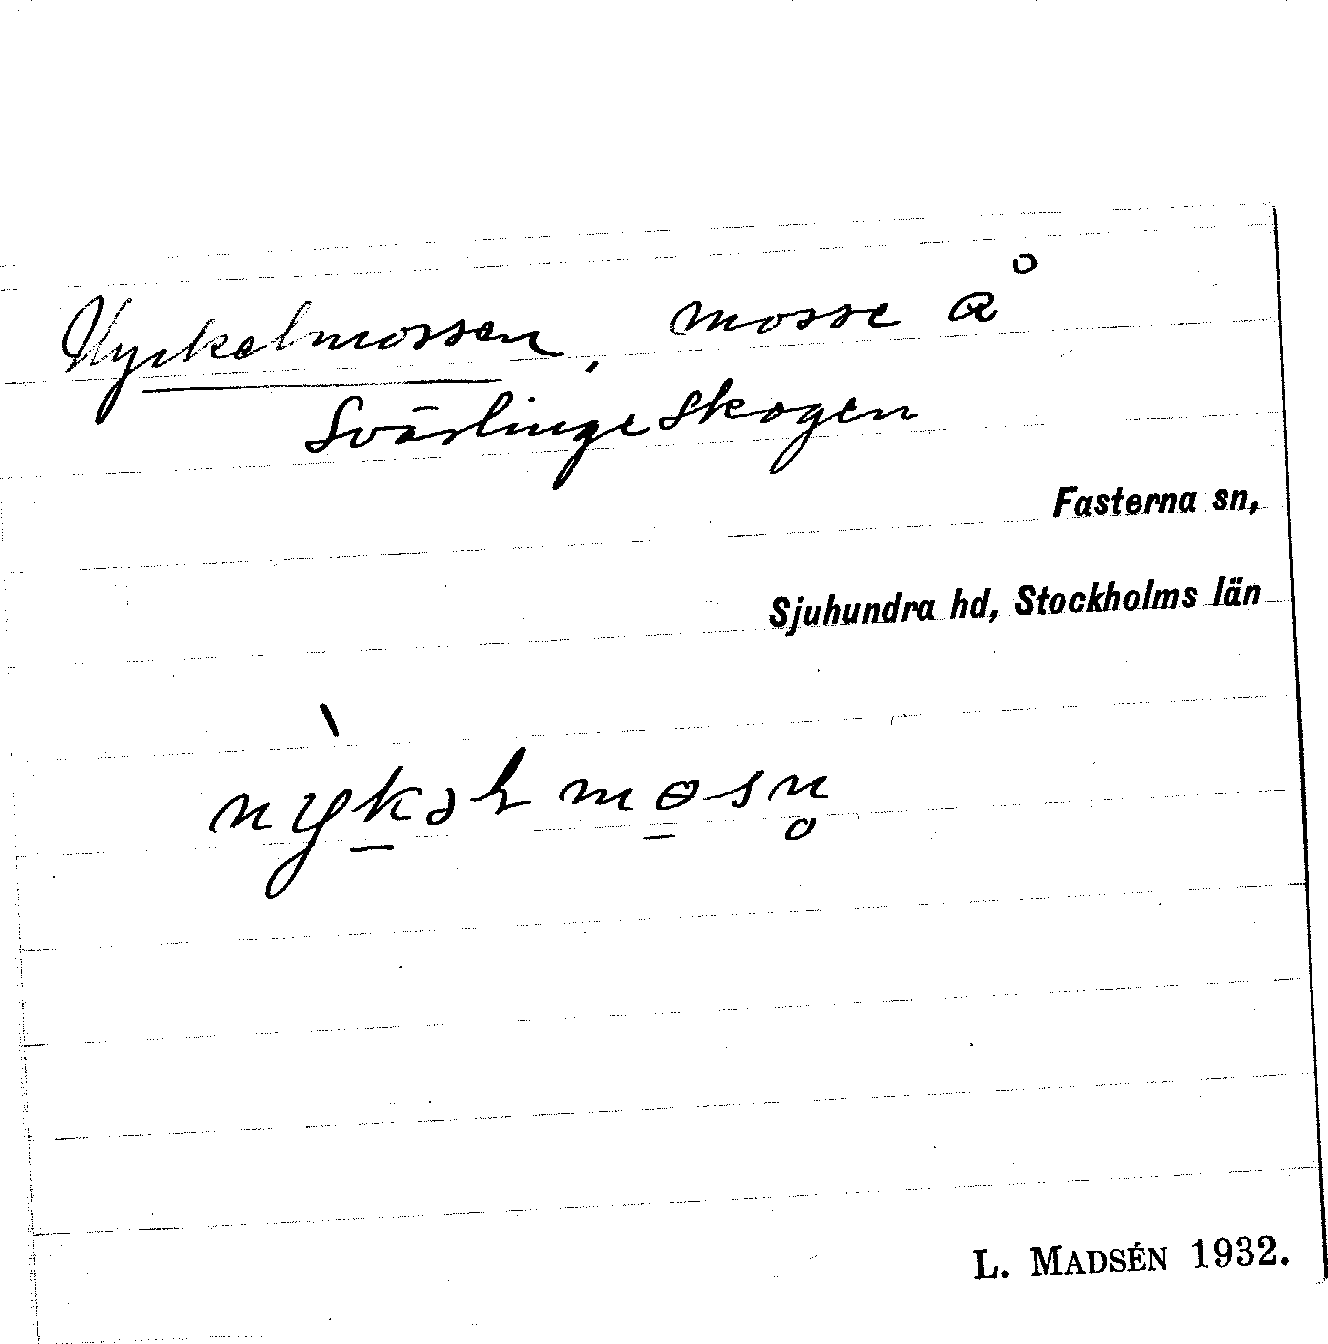 Nyckelmossen, mosse å
Svärlingeskogen
Fasterna sn,
Sjuhundra hd, Stockholms län
nỳk̲əl mɵ̲sn̥
L. MADSÉN 1932.